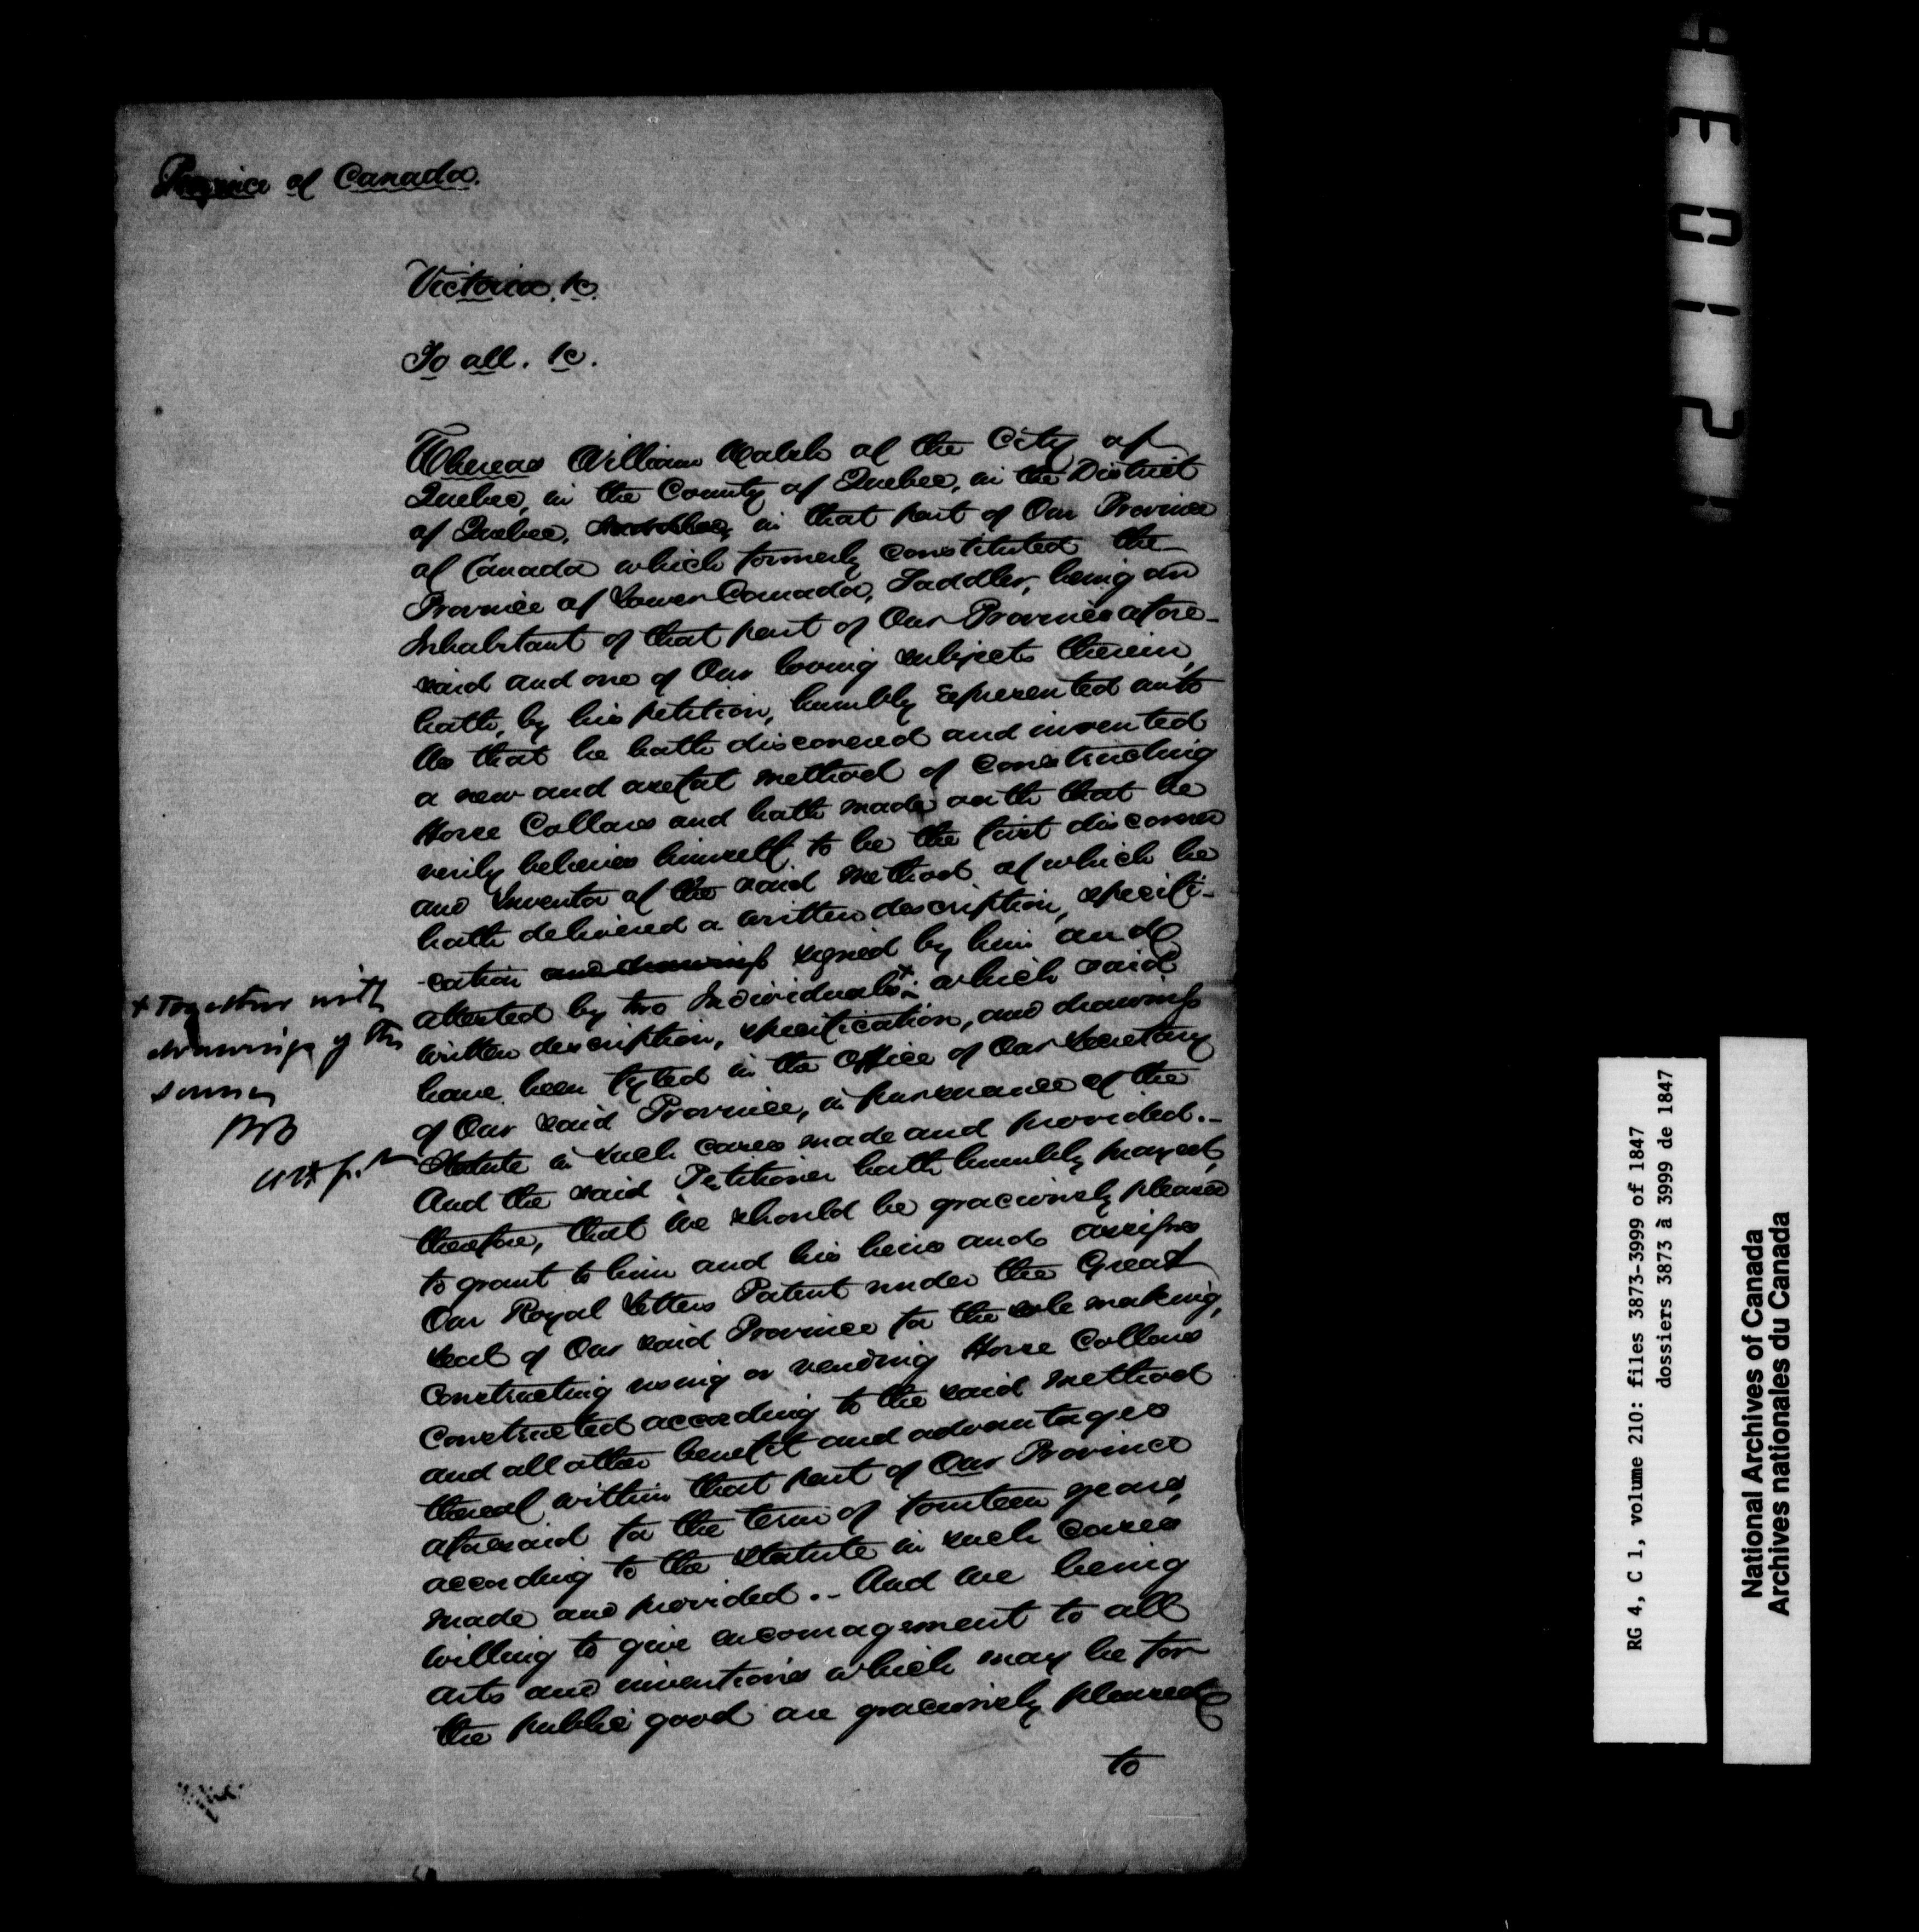 Province of Canada.
Victoria, &c.
To all. &c.
Whereas William Walsh of the City of
Quebec, in the County of Quebec, in the District
of Quebec, in that part of Our Province
of Canada which formerly constituted the
Province of Lower Canada, Saddler, being an
Inhabitant of that part of Our Province afore-
said and one of Our loving subjects therein,
hath, by his petition, humbly represented unto
Us that he hath discovered and invented
a new and useful method of constructing
Horse Collars and hath made oath that he
verily believes himself to be the first discoverer
and Inventor of the said method of which he
hath delivered a written description, specifi-
-cation and drawings signed by him and
attested by two Individuals + ; which said
written description, specification, and drawings
have been fyled in the Office of Our Secretary
of Our said Province, in pursuance of the
Statute in such cases made and provided.-
And the said Petitioner hath humbly prayed,
therefore, that we should be graciously pleased
to grant to him and his heirs and assigns
Our Royal Letters Patent under the Great
Seal of Our said Province for the sole making,
constructing using or vending Horse Collars
constructed according to the said method
and all other benefit and advantages
thereof within that part of Our Province
aforesaid for the term of fourteen years,
according to the Statute in such cases
made and provided.- And we being
willing to give encouragement to all
arts and inventions which may be for
the public good are graciously pleased
to
+ Together with
drawings of the
same
RG 4, C 1, volume 210: files 3873-3999 of 1847
dossiers 3873 à 3999 de 1847
National Archives of Canada
Archives nationales du Canada